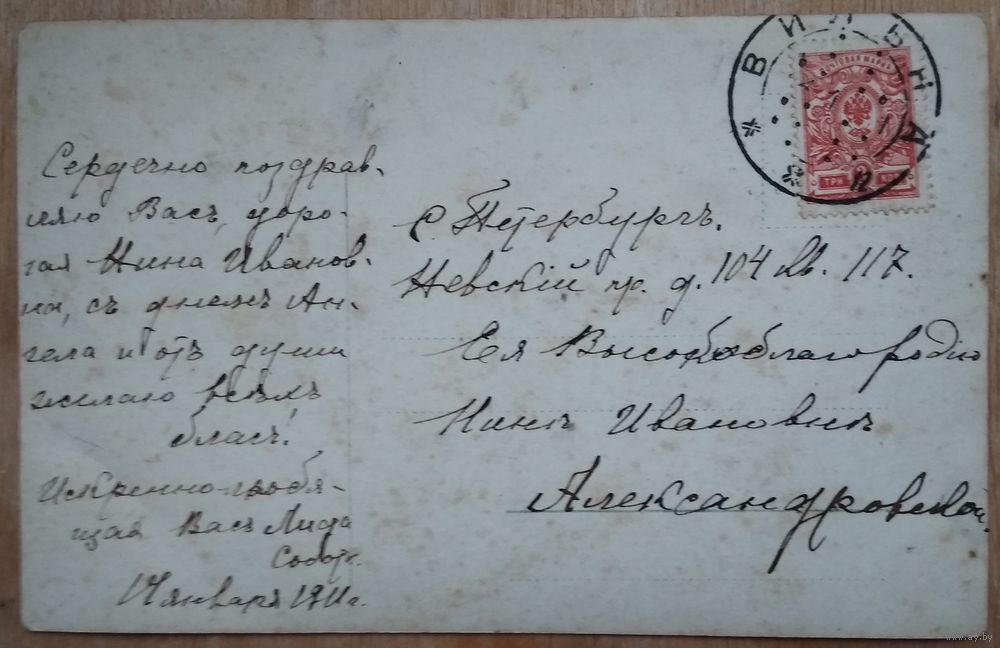 Сердечно поздрав-
ляю Васъ, доро-
гая Нина Иванов-
на, съ днемъ Ан-
гела и отъ души
желаю всѣхъ
благъ.
Искренно-любя-
щая Васъ Лида
14 января 1911 г.
ВИЛЬНА
ПОЧТОВАЯ МАРКА
ТРИ 3 КОП
С. Петербургъ.
Невскій пр. д. 104 кв. 117.
Ея Высокоблагородію
Нинѣ Ивановнѣ
Александровской.
www.ay.by